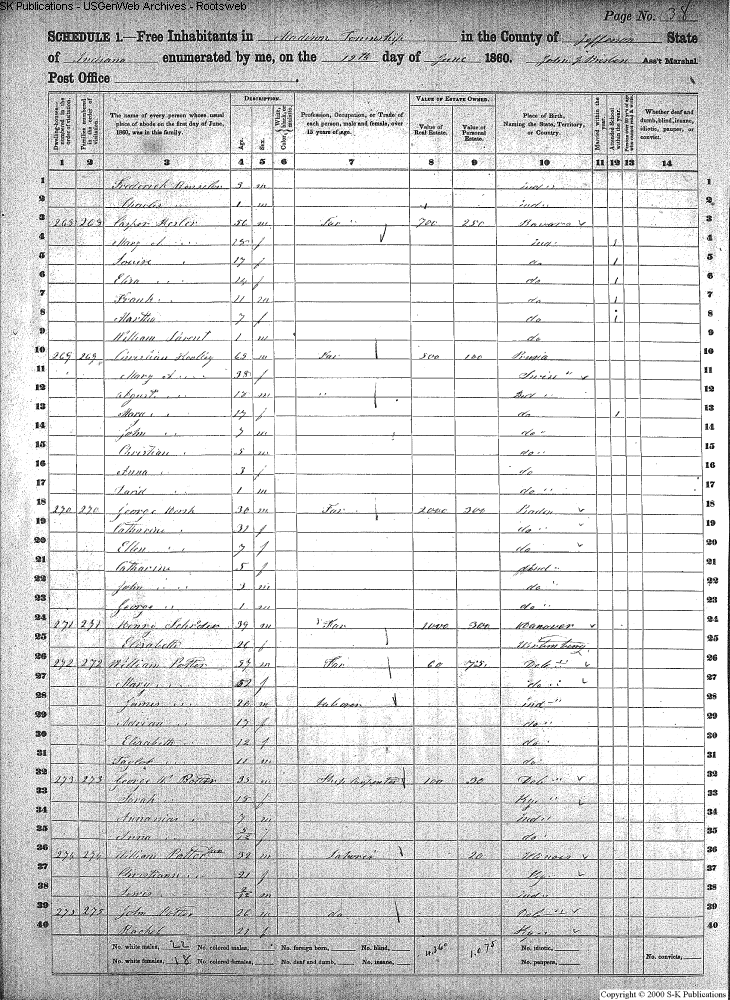 SK Publications - USGenWeb Archives - Rootsweb
Page No. 38
SCHEDULE 1.—Free Inhabitants in Madison Township in the County of Jefferson State
of Indiana enumerated by me, on the 12th day of June 1860. John J Ass't Marshal.
Post Office
Dwelling-houses numbered in the order of visitation.
Families numbered in the order of visitation.
The name of every person whose usual place of abode on the first day of June, 1860, was in this family.
DESCRIPTION.
Age.
Sex.
Color, White, black, or mulatto.
Profession, Occupation, or Trade of each person, male and female, over 15 years of age.
VALUE OF ESTATE OWNED.
Value of Real Estate.
Value of Personal Estate.
Place of Birth, Naming the State, Territory, or Country.
Married within the year.
Attended School within the year.
Whether deaf and dumb, blind, insane, idiotic, pauper, or convict.
1 2 3 4 5 6 7 8 9 10 11 12 13 14
1 Frederick 3 m ind 1
2 Charles 1 m ind 2
3 268 268 Casper Far 700 250 Bavaria 3
4 Mary A f ind 1 4
5 Louisa 17 f do 1 5
6 Eliza 14 f do 1 6
7 Frank 11 m do 1 7
8 Martha 7 f do 1 8
9 William 1 m do 9
10 269 269 Christian 63 m Far 800 100 Prusia 10
11 Mary A 38 f Swiss 11
12 August 12 m Ind 12
13 Mary 17 f do 1 13
14 John 7 m do 14
15 Christian 5 m do 15
16 Anna 3 f do 16
17 David 1 m do 17
18 270 270 George 30 m Far 2000 300 Baden 18
19 Catharine 32 f do 19
20 Ellen 7 f do 20
21 Catharine 5 f Ind 21
22 John 3 m do 22
23 George 1 m do 23
24 271 271 Henry Schrider 39 m Far 1000 300 Hanover 24
25 Elizabeth 26 f Wirtemberg 25
26 272 272 William Potter 57 m Far 60 75 Del 26
27 Mary 52 f do 27
28 James 20 m Laborer ind 28
29 Adrian 17 f do 29
30 Elizabeth 12 f do 30
31 Jacob 11 m do 31
32 273 273 George W Potter 25 m Ship Carpenter 100 30 Del 32
33 Sarah 18 f Ky 33
34 Annanias 7 m ind 34
35 Anna f do 35
36 274 274 William Potter Jun 32 m Laborer 20 Illinois 36
37 Christiana 21 f Ky 37
38 Lewis m ind 38
39 275 275 John Potter 26 m do Del 39
40 Rachel 21 f Ky 40
No. white males, 22 No. colored males, No. foreign born, No. blind, No. idiotic,
No. white females, 18 No. colored females, No. deaf and dumb, No. insane, 1,075 No. paupers, No. convicts,
Copyright © 2000 S-K Publications